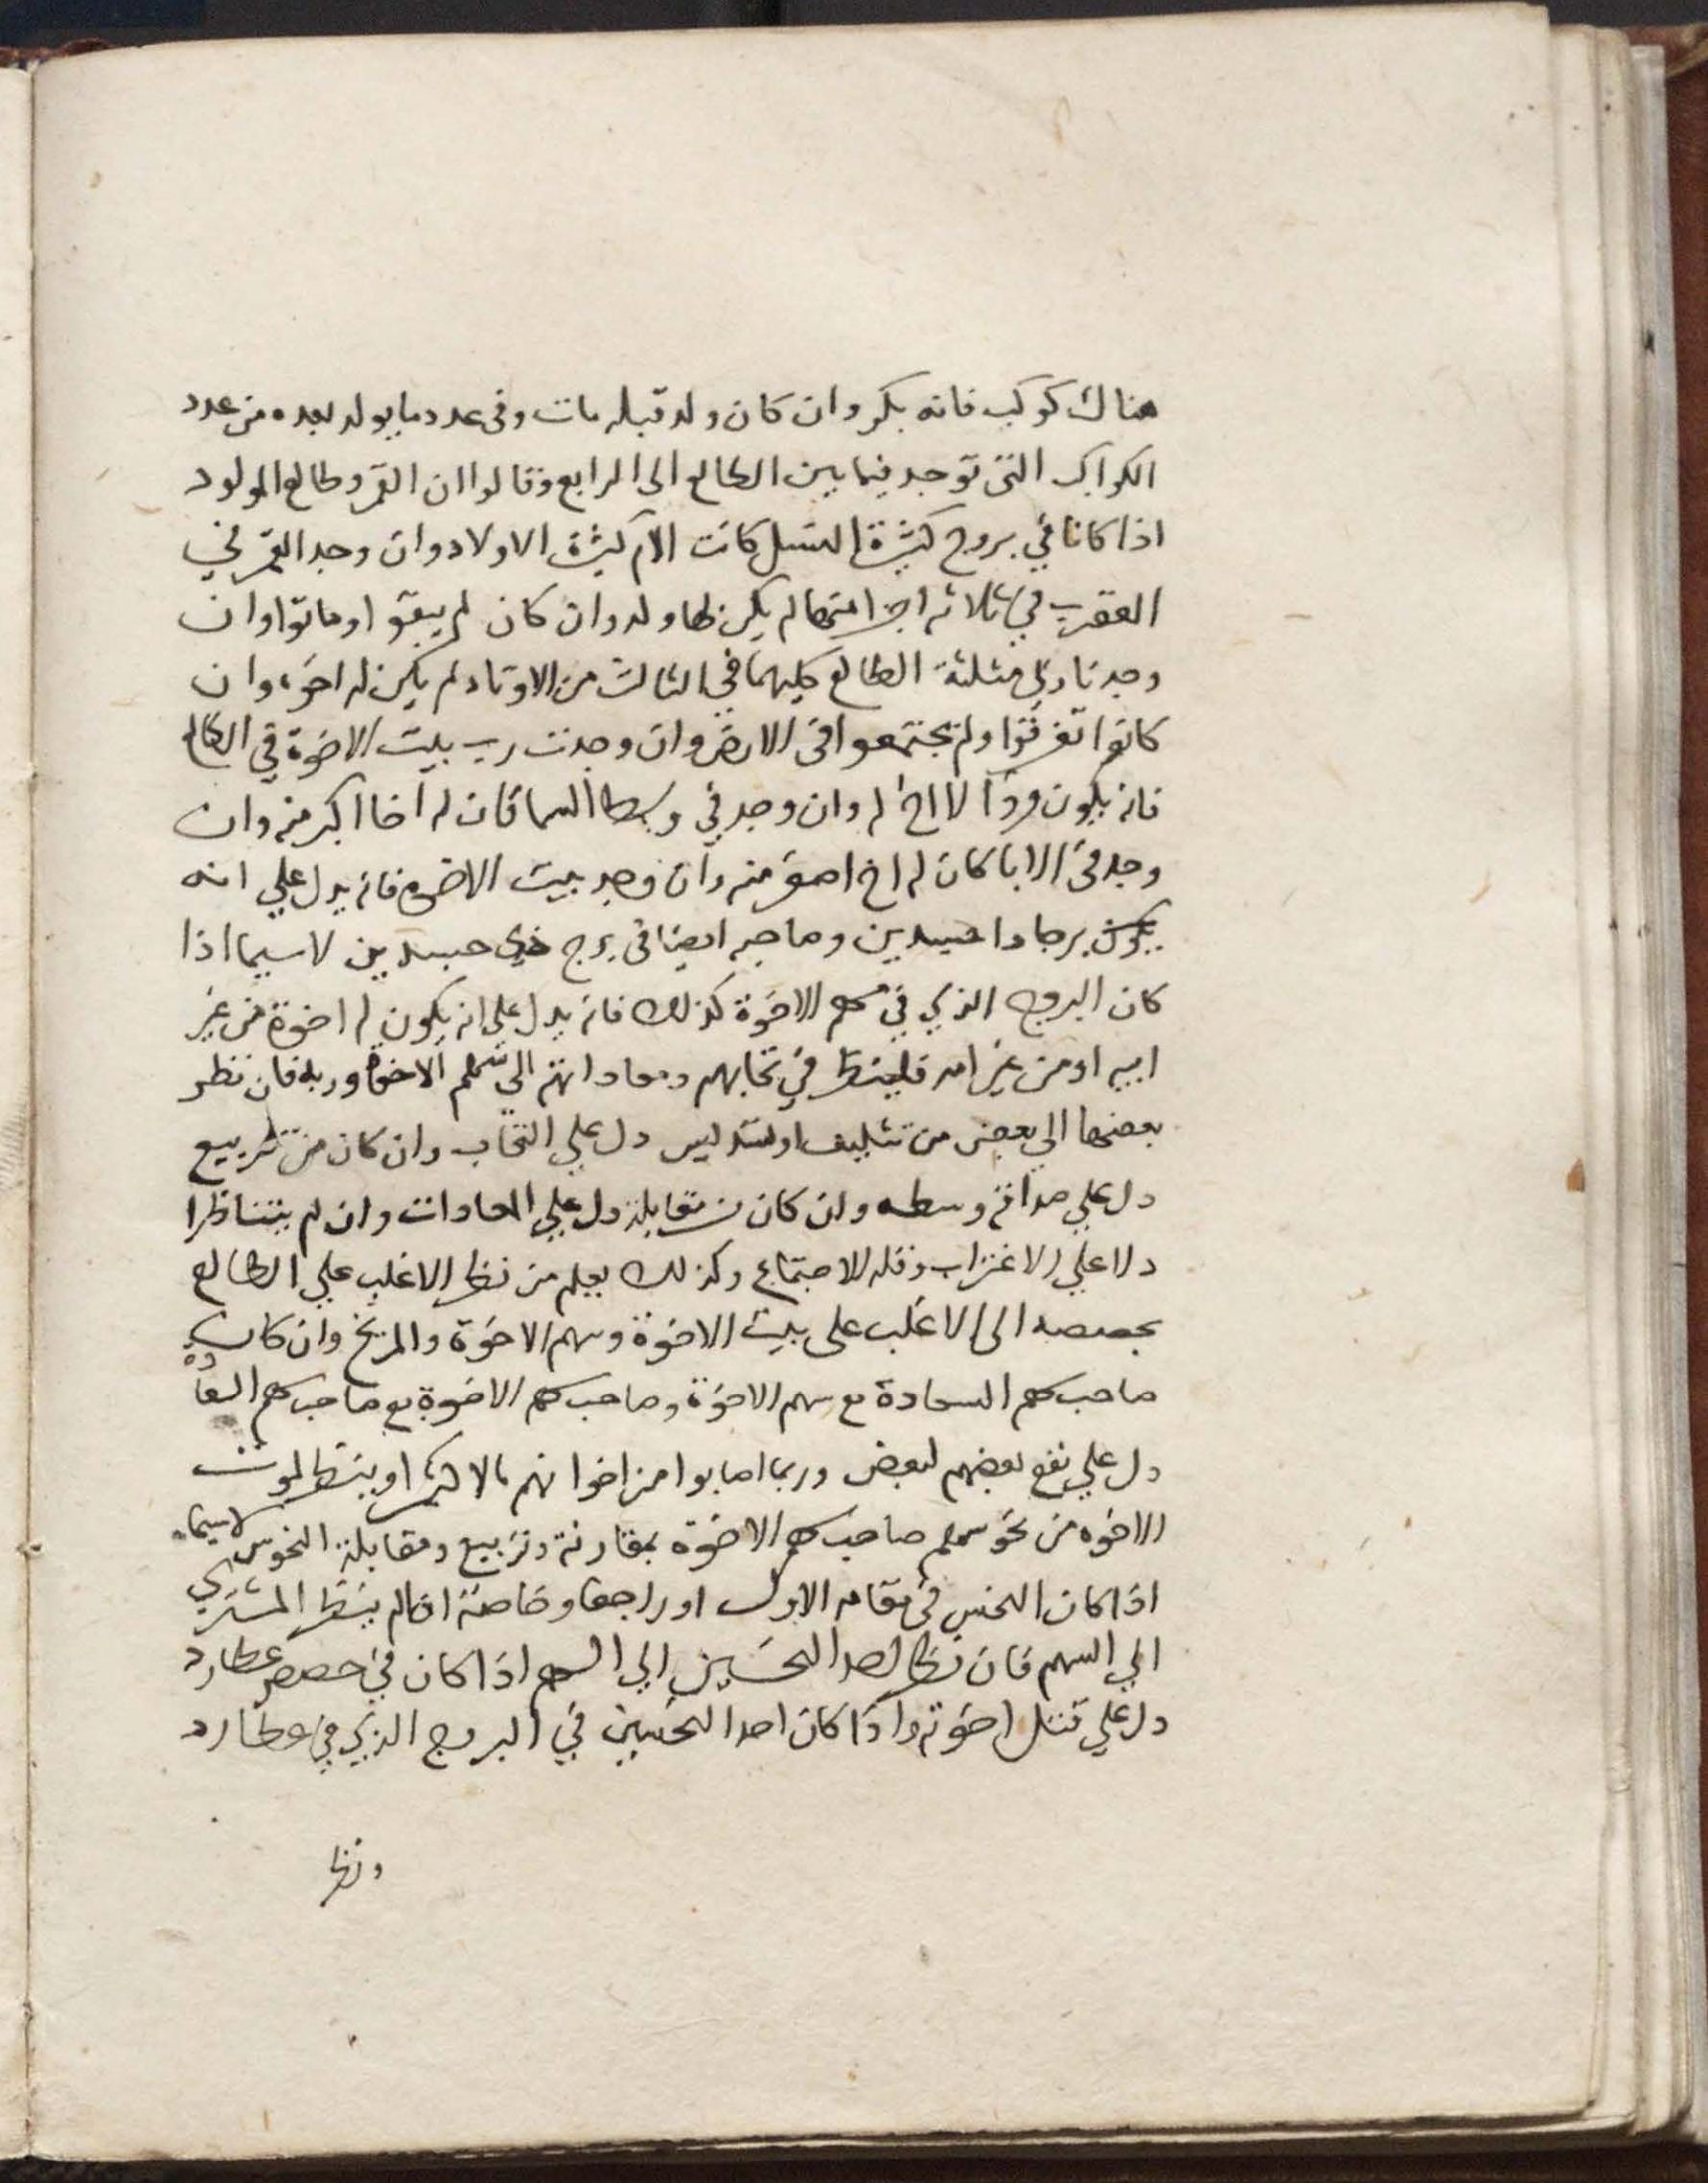 هناك كوكب فانه بكر وان كان ولد قبله مات وفى عدد ما يولد بعده من عدد
الكواكب التى توجد فيما بين الطالع الى الرابع وقالوا ان القمر وطالع المولود
اذا كانا في بروج كثيرة النسل كانت الام كثيرة الاولاد وان وجد القمر في
العقرب في ثلاثه اجزا منها لم يكن لها ولد وان كان لم يبقو اوماتوا وان
وجدنا ربي مثلثة الطالع كليهما في الثالث من الاوتاد لم يكن له اخوة وان
كانوا تفرقوا ولم يجتمعوا فى الارض وان وجدت رب بيت الاخوة في الطالع
فانه يكون فردا لا اخ له وان وجد في وسط السما كان له اخا اكبر منه وان
وجد فى الابا كان له اخ اصغر منه وان وجد بيت الاخوة فانه يدل علي انه
يكون برجا دا جسدين وصاحبه ايضا فى برج ذي جسدين لا سيما اذا
كان البروج الذي في سهم الاخوة كذلك فانه يدل على انه يكون له اخوة من غير
ابيه او من غير امه فلينظر في تحابهم ومعاداتهم الى سهم الاخوة وربه فان نظر
بعضها الى بعض من تثليث او تسديس دل علي التحاب وان كان من تربيع
دل علي صداقه وسطه وان كان من مقابلة دل علي المعادات وان لم يتناظرا
دلا علي الاغتراب وقلة الاجتماع وكذلك يعلم من نظر الاغلب علي الطالع
بحصصه الى الاغلب على بيت الاخوة وسهم الاخوة والمريخ وان كان
صاحب سهم السعادة مع سهم الاخوة وصاحب سهم الاخوة مع صاحب سهم السعاده
دل علي نفع بعضهم لبعض وربما اصابوا من اخوانهم مالا كثيرا وينظر لموت
الاخوه من نحو سهم صاحب سهم الاخوة بمقارنة وتربيع ومقابلة النحوس لاسيما
اذا كان النحس في مقامه الاول او راجعا وخاصة اذا لم ينظر المشتري
الي السهم فان نظر احد النحسين الي السهم اذا كان في حصص عطارد
دل علي قتل اخوته واذا كان احد النحسين في البروج الذي في عطارد
ونظر